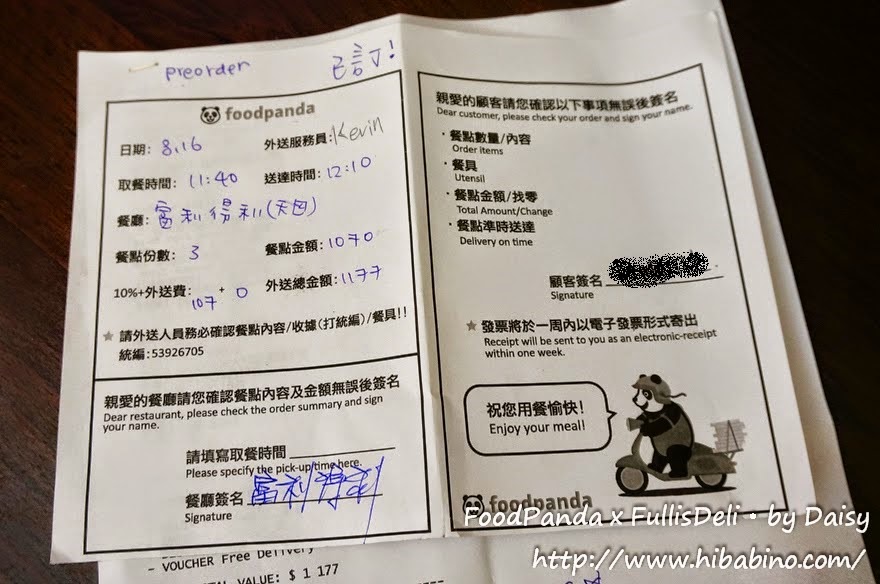 preorder
已訂!
foodpanda
日期: 8.16 外送服務員: Kevin
取餐時間: 11:40 送達時間: 12:10
餐廳: 富利得利(天母)
餐點份數: 3 餐點金額: 1070
10%+外送費: 107 + 0 外送總金額: 1177
★ 請外送人員務必確認餐點內容/收據(打統編)/餐具!!
統編: 53926705
親愛的餐廳請您確認餐點內容及金額無誤後簽名
Dear restaurant, please check the order summary and sign
your name.
請填寫取餐時間
Please specify the pick-up time here.
餐廳簽名 富利得利
Signature
親愛的顧客請您確認以下事項無誤後簽名
Dear customer, please check your order and sign your name.
· 餐點數量/內容
Order items
· 餐具
Utensil
· 餐點金額/找零
Total Amount/Change
· 餐點準時送達
Delivery on time
顧客簽名
Signature
★ 發票將於一周內以電子發票形式寄出
Receipt will be sent to you as an electronic-receipt
within one week.
祝您用餐愉快!
Enjoy your meal!
foodpanda
- VOUCHER Free Delivery
VALUE: $ 1 177
FoodPanda x FullisDeli · by Daisy
http://www.hibabino.com/